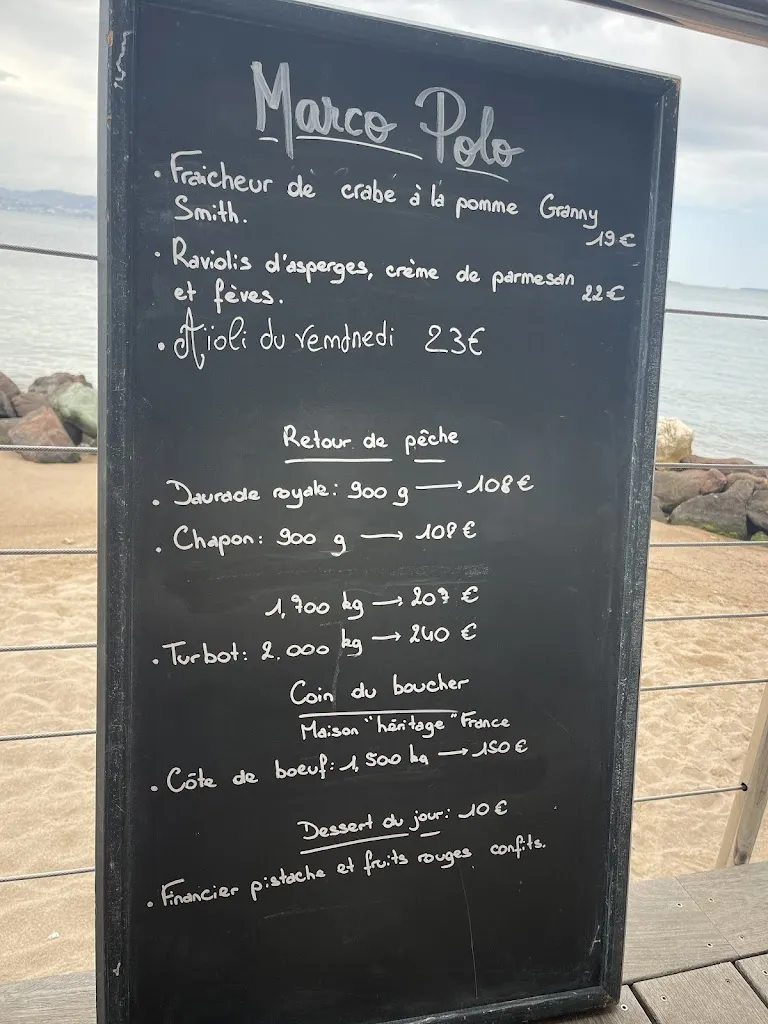 Marco Polo
• Fraîcheur de crabe à la pomme Granny
Smith. 19€
• Raviolis d'asperges, crème de parmesan
et fèves. 22€
• Aïoli du vendredi 23€
Retour de pêche
• Daurade royale: 900 g → 108€
• Chapon: 900 g → 108€
1,700 kg → 207 €
• Turbot: 2.000 kg → 240 €
Coin du boucher
Maison "héritage" France
• Côte de boeuf: 1,500 kg → 150€
Dessert du jour: 10€
• Financier pistache et fruits rouges confits.